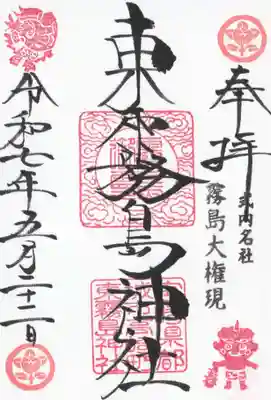 奉拝
式内名社
霧島大権現
東霧島神社
東霧島神社
令和七年五月二十二日